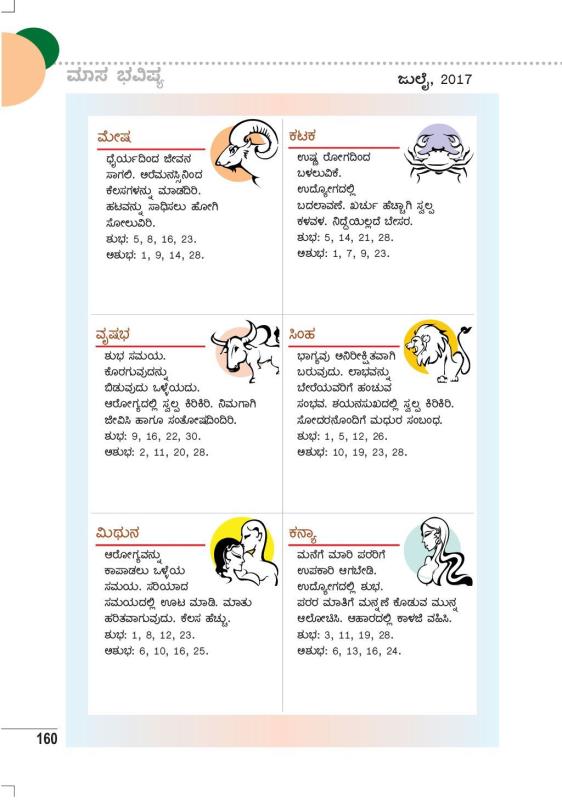 ಮಾಸ ಭವಿಷ್ಯ
ಜುಲೈ, 2017
ಮೇಷ
ಧೈರ್ಯದಿಂದ ಜೀವನ
ಸಾಗಲಿ. ಅರೆಮನಸ್ಸಿನಿಂದ
ಕೆಲಸಗಳನ್ನು ಮಾಡದಿರಿ.
ಹಟವನ್ನು ಸಾಧಿಸಲು ಹೋಗಿ
ಸೋಲುವಿರಿ.
ಶುಭ: 5, 8, 16, 23.
ಅಶುಭ: 1, 9, 14, 28.
ಕಟಕ
ಉಷ್ಣ ರೋಗದಿಂದ
ಬಳಲುವಿಕೆ.
ಉದ್ಯೋಗದಲ್ಲಿ
ಬದಲಾವಣೆ. ಖರ್ಚು ಹೆಚ್ಚಾಗಿ ಸ್ವಲ್ಪ
ಕಳವಳ. ನಿದ್ದೆಯಿಲ್ಲದೆ ಬೇಸರ.
ಶುಭ: 5, 14, 21, 28.
ಅಶುಭ: 1, 7, 9, 23.
ವೃಷಭ
ಶುಭ ಸಮಯ.
ಕೊರಗುವುದನ್ನು
ಬಿಡುವುದು ಒಳ್ಳೆಯದು.
ಆರೋಗ್ಯದಲ್ಲಿ ಸ್ವಲ್ಪ ಕಿರಿಕಿರಿ. ನಿಮಗಾಗಿ
ಜೀವಿಸಿ ಹಾಗೂ ಸಂತೋಷದಿಂದಿರಿ.
ಶುಭ: 9, 16, 22, 30.
ಅಶುಭ: 2, 11, 20, 28.
ಸಿಂಹ
ಭಾಗ್ಯವು ಅನಿರೀಕ್ಷಿತವಾಗಿ
ಬರುವುದು. ಲಾಭವನ್ನು
ಬೇರೆಯವರಿಗೆ ಹಂಚುವ
ಸಂಭವ. ಶಯನಸುಖದಲ್ಲಿ ಸ್ವಲ್ಪ ಕಿರಿಕಿರಿ.
ಸೋದರನೊಂದಿಗೆ ಮಧುರ ಸಂಬಂಧ.
ಶುಭ: 1, 5, 12, 26.
ಅಶುಭ: 10, 19, 23, 28.
ಮಿಥುನ
ಆರೋಗ್ಯವನ್ನು
ಕಾಪಾಡಲು ಒಳ್ಳೆಯ
ಸಮಯ. ಸರಿಯಾದ
ಸಮಯದಲ್ಲಿ ಊಟ ಮಾಡಿ. ಮಾತು
ಹರಿತವಾಗುವುದು. ಕೆಲಸ ಹೆಚ್ಚು.
ಶುಭ: 1, 8, 12, 23.
ಅಶುಭ: 6, 10, 16, 25.
ಕನ್ಯಾ
ಮನೆಗೆ ಮಾರಿ ಪರರಿಗೆ
ಉಪಕಾರಿ ಆಗಬೇಡಿ.
ಉದ್ಯೋಗದಲ್ಲಿ ಶುಭ.
ಪರರ ಮಾತಿಗೆ ಮನ್ನಣೆ ಕೊಡುವ ಮುನ್ನ
ಆಲೋಚಿಸಿ. ಆಹಾರದಲ್ಲಿ ಕಾಳಜಿ ವಹಿಸಿ.
ಶುಭ: 3, 11, 19, 28.
ಅಶುಭ: 6, 13, 16, 24.
160